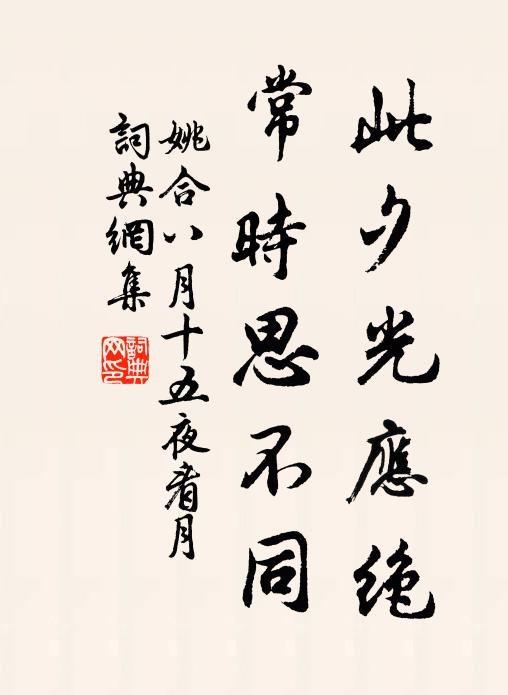 此夕光應絶
常時思不同
姚合八月十五夜看月
詞典網集
詞典
网印